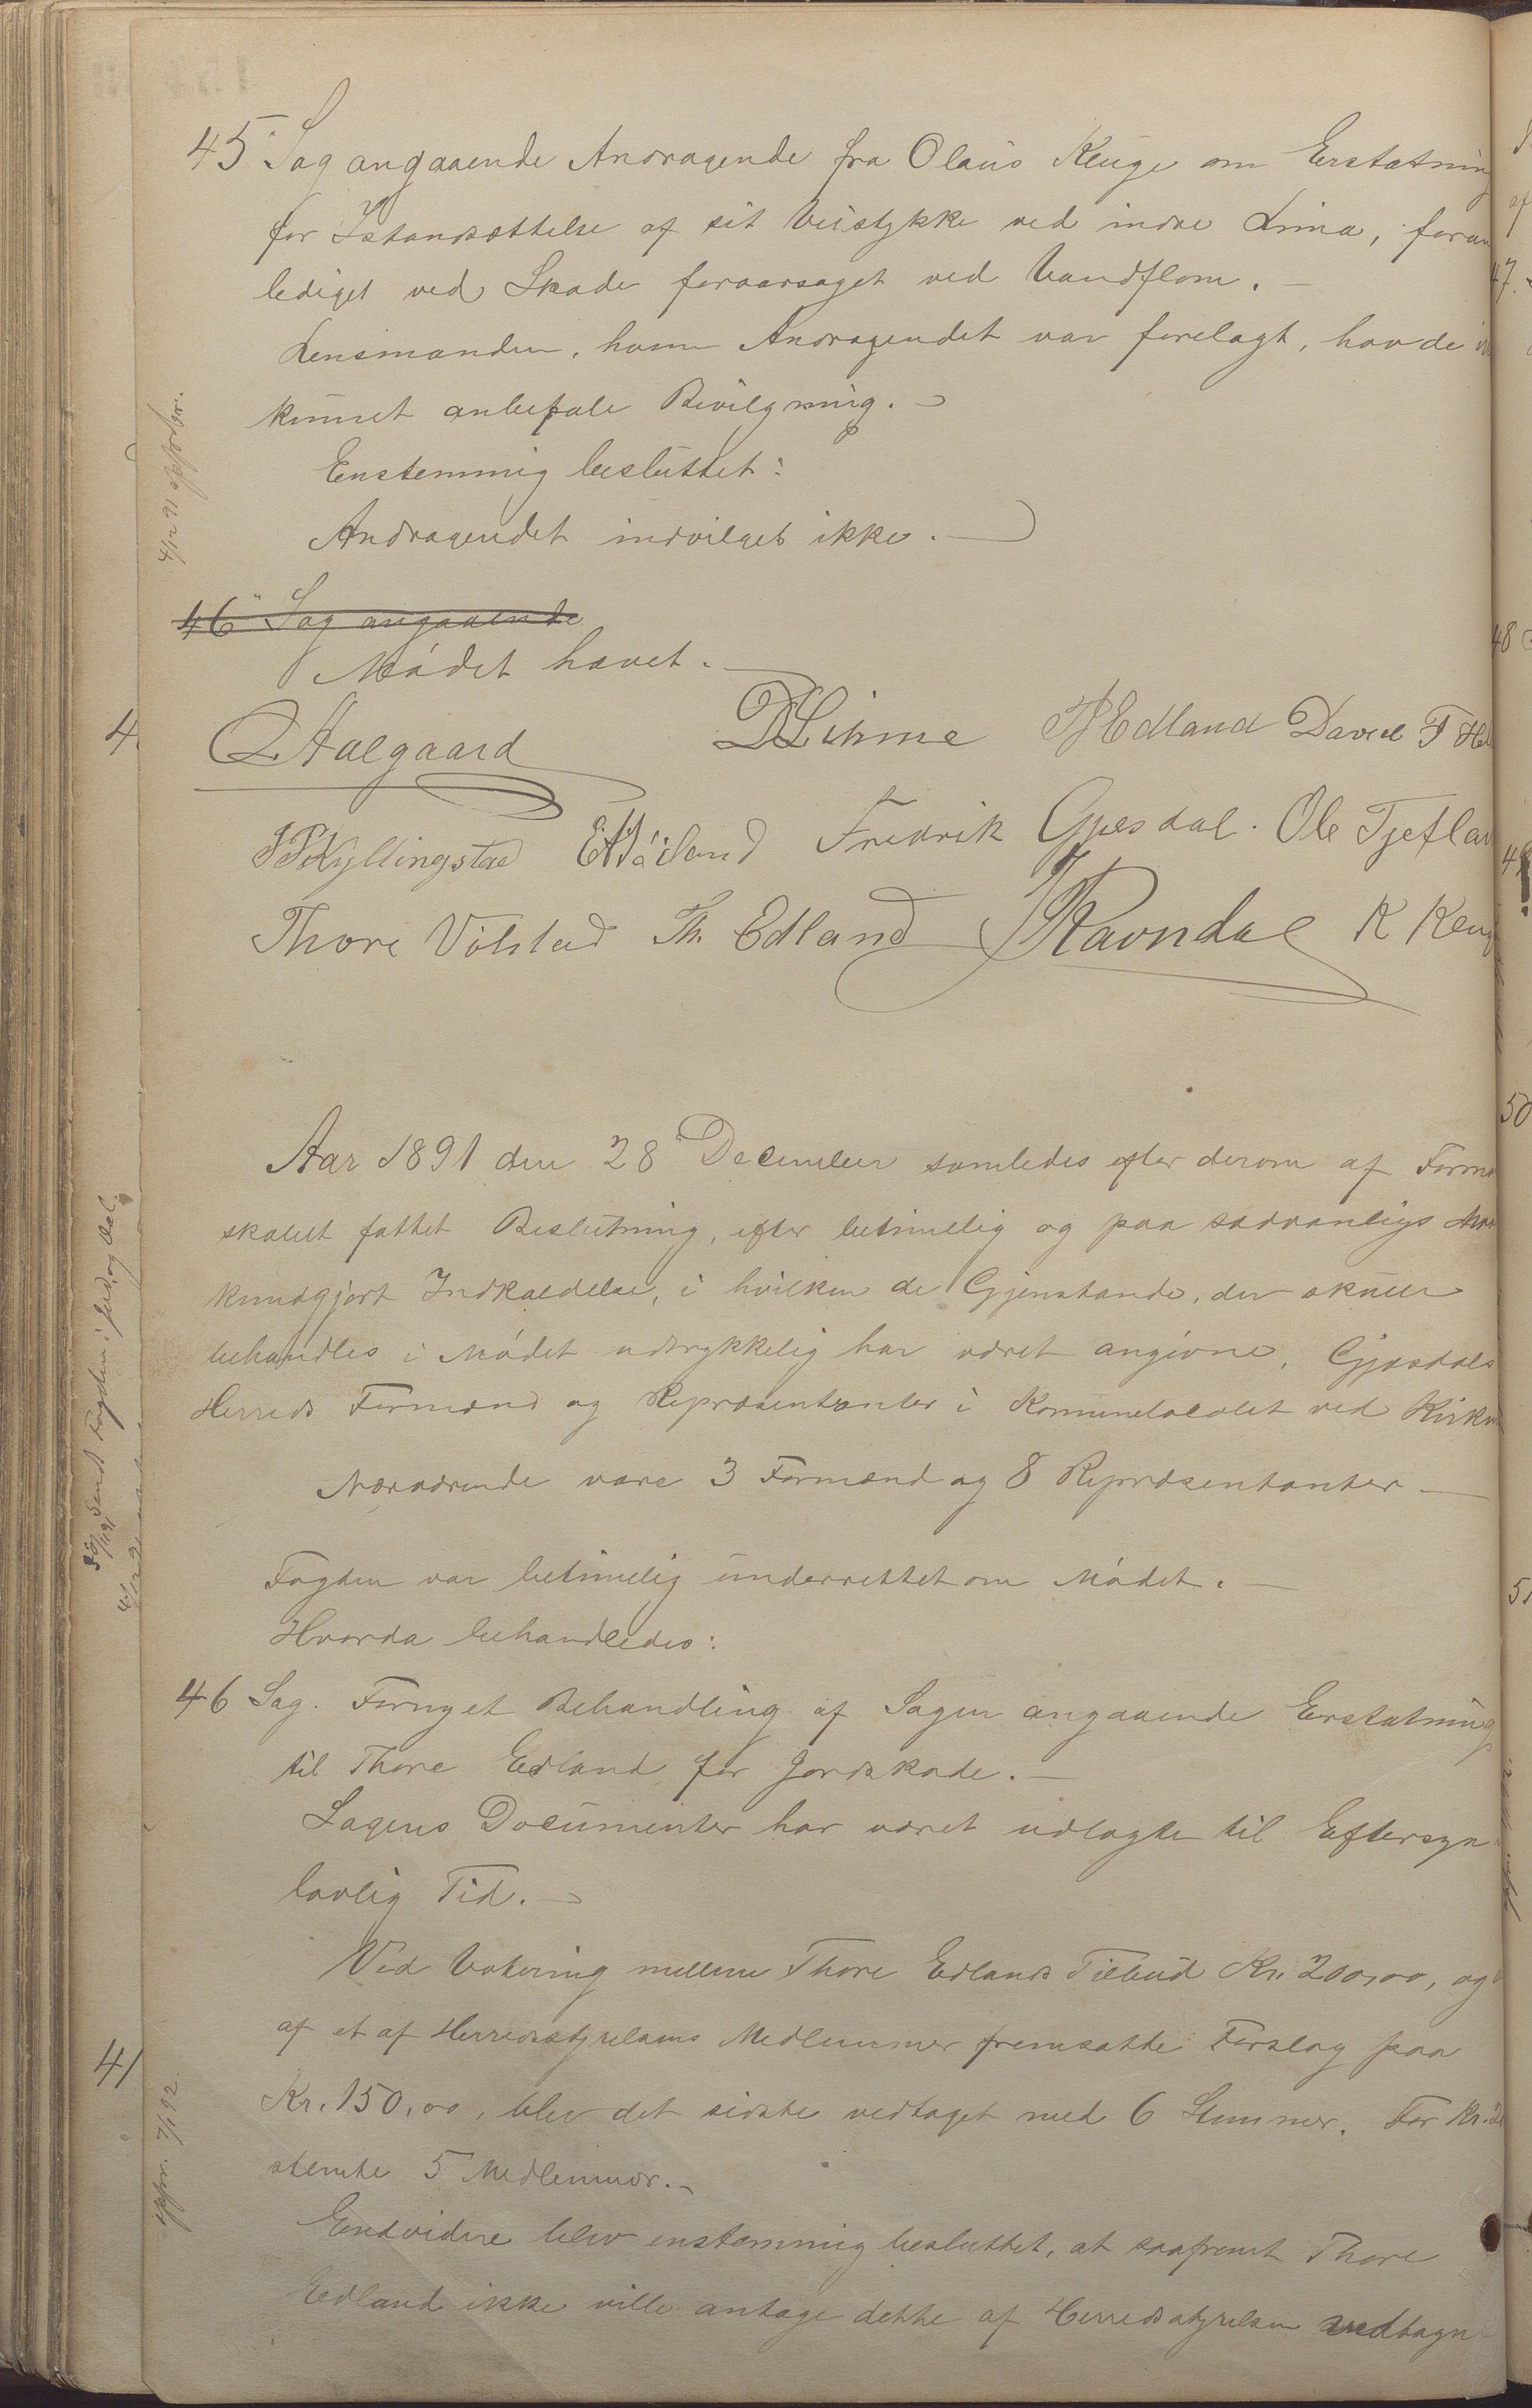 45 Sag angaaende Andragende fra Olaus Kluge om Erstatning
for Istandsættelse af sit Veistykke ved indre Lima, foran
lediget ved Skade foraarsaget ved Vandflom. –
Lensmanden, hvem Andragendet var forelagt, havde
kunnet anbefale Bevilgning. –
Enstemmig besluttet:
Andragendet indvilges ikke. –
46 Sag angaaende
Mødet hævet. –
Aalgaard DLihme Edland David T
Kyllingstad Fredrik Gjesdal. Ole Tjeflan
Thore Vølstad Th. Edland Ravndal K
Aar 1891 den 28 December samledes efter derom af Form
skabet fattet Beslutning, efter betimelig og paa sædvanligs
kundgjort Indkaldelse, i hvilken de Gjenstande, der skulle
behandles i Mødet udtrykkelig har været angivne, Gjesdals
Herreds Formænd og Repræsentanter i Komunelocalet ved Kirken
Nærværende vare 3 Formænd og 8 Repræsentanter –
Fogden var betimelig underrettet om Mødet. –
Hvorda behandledes:
46 Sag. Fornyet Behandling af Sagen angaaende Erstatning
til Thore Edland for Jordskade. –
Sagens Documenter har været udlagte til Eftersyn
lovlig Tid. –
Ved Votering mellem Thore Edlands Tilbud Kr. 200,00, og
af et af Herredsstyrelsens Medlemmer fremsatte Forslag paa
Kr. 150,00, blev det sidste vedtaget med 6 Stemmer. For Kr. 2
stemte 5 Medlemmer. –
Endvidere blev enstemmig besluttet, at saafremt Thore
Edland ikke ville antage dette af Herredsstyrelsen vedtagn